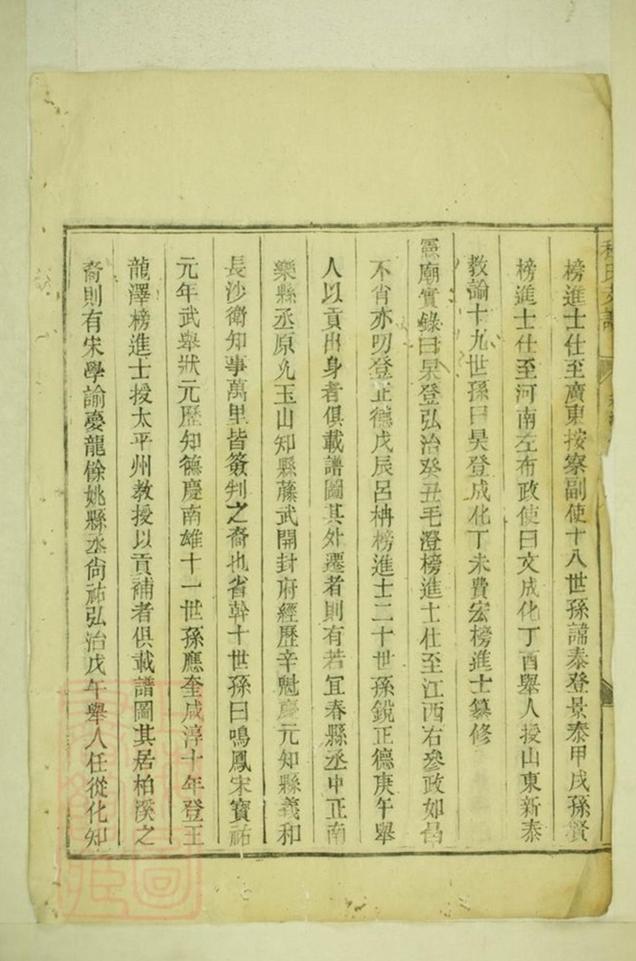 榜進士仕至廣東按察副使十八世孫諱泰登景泰甲戌孫賢
榜進士仕至河南左布政使曰文成化丁酉舉人授山東新泰
教諭十九世孫曰昊登成化丁未費宏榜進士纂修
憲廟實錄曰杲登弘治癸丑毛澄榜進士仕至江西右參政如昌
不肖亦叨登正德戊辰呂柟榜進士二十世孫銳正德庚午舉
人以貢出身者俱載譜圖其外遷者則有若宜春縣丞中正南
樂縣丞原允玉山知縣藤武開封府經歷辛魁慶元知縣義和
長沙衛知事萬里皆簽判之裔也省幹十世孫曰鳴鳳宋寶祐
元年武舉狀元歷知德慶南雄十一世孫應奎咸淳十年登王
龍澤榜進士授太平州教授以貢補者俱載譜圖其居柏溪之
裔則有宋學諭慶龍餘姚縣丞尚祐弘治戊午舉人任從化知